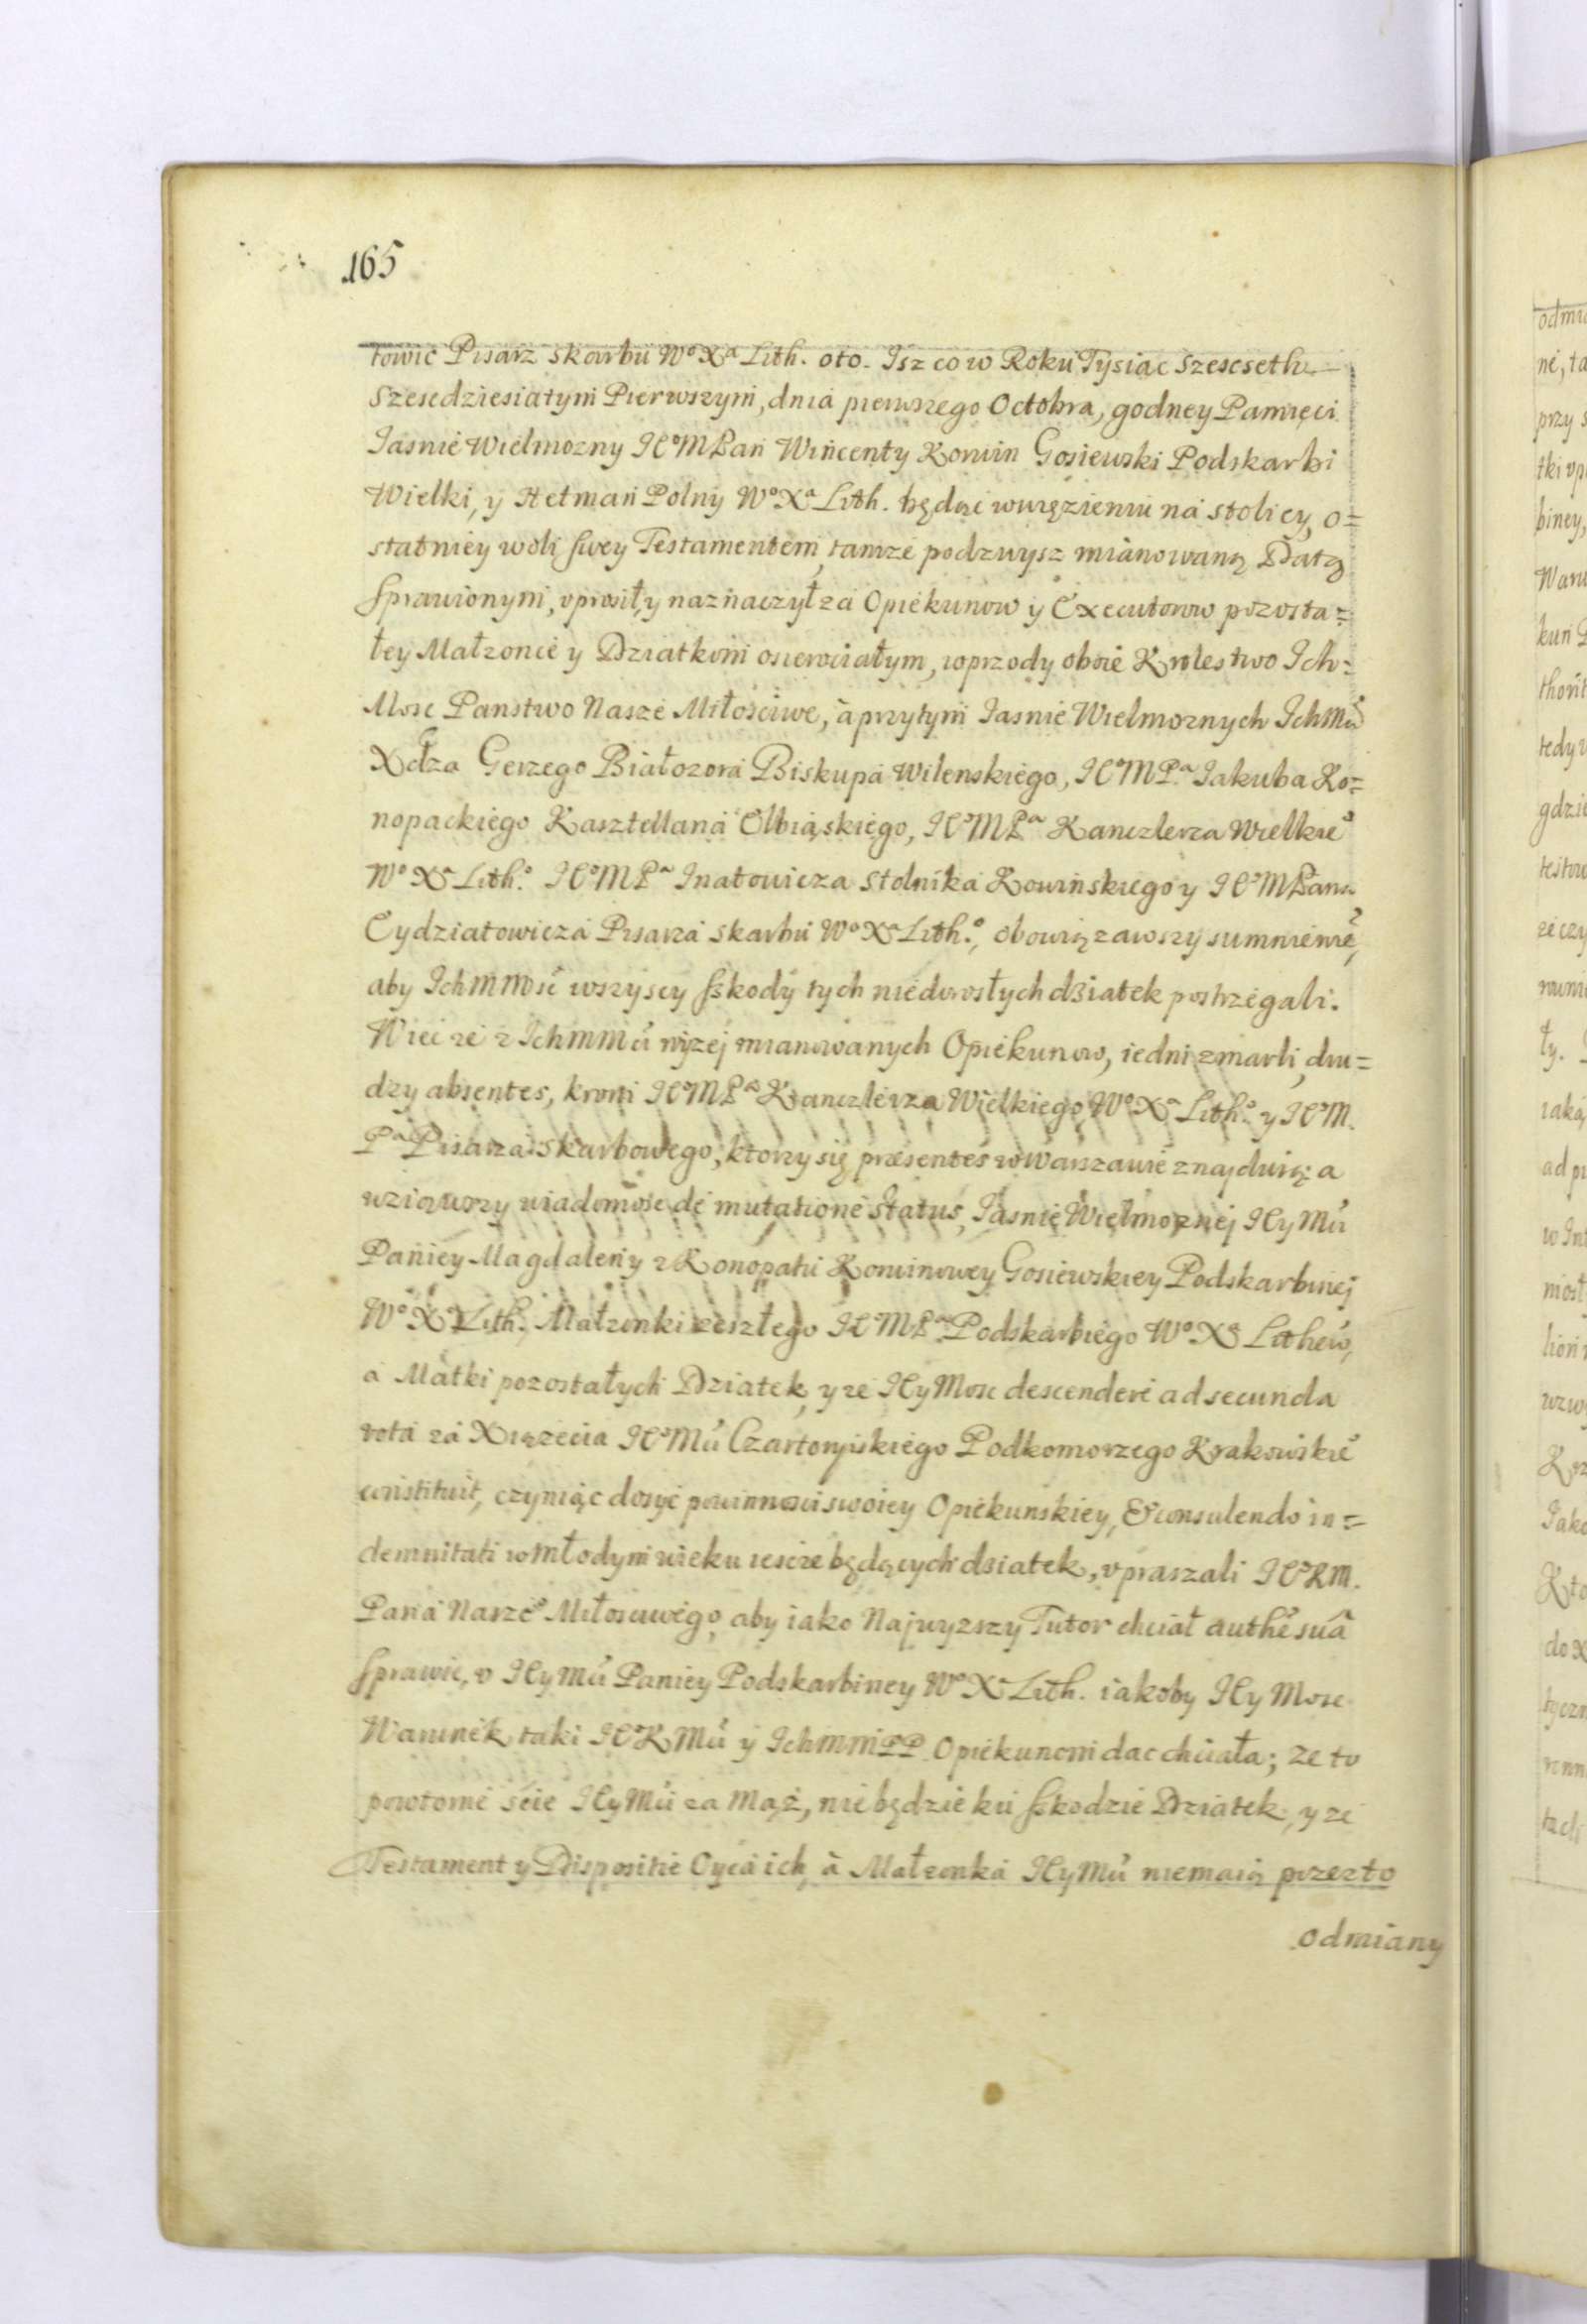 165
towic Pisarz skarbu Wº Xª Lith. oto. Isz co w Roku Tysiac Szescseth
Szescdziesiatym Pierwszym, dnia pierwszego Octobra, godney Pamięci
Iasnie Wielmozny IEºMPan Wincenty Korwin Gosiewski Podskarbi
Wielki, y Hetman Polny Wº Xª Lith. będąc w więzieniu na stolicy, o=
statniey woli swey Testamentem, tamze podzwysz mianowaną Datą
sprawionym, uprosił, y naznaczył za Opiekunow y Executorow pozosta=
łey Małzonce y Dziatkom osierociałym, wprzody oboie Krolestwo Ich=
Mosc Panstwo Nasze Miłosciwe, à przytym Iasnie Wielmoznych IchMċi
Xdza Gerzego Białozora Biskupa Wilenskiego, IEºMPª Iakuba Ko=
nopackiego Kasztellana Elbiąskiego, IEºMPª Kanczlerza Wielkieº
Wº Xª Lith.º IEºMPª Inatowicza Stolnika Kowinskiego y IEºMPana
Cydziatowicza Pisarza skarbu Wº Xª Lith.º, obowiązawszy sumnienie,
aby Ichmmosć wszyscy szkody tych niedorosłych dziatek postrzegali.
Wiec ze z Ichmmċi wyzej mianowanych Opiekunow, iedni zmarli, dru=
dzy absentes, krom IEºMPª Kanczlerza Wielkiego Wº Xª Lith.º y IEºM.
Pª Pisarza skarbowego, ktorzy się præsentes w Warszawie znajduią: a
wziąwszy wiadomosc de mutatione status, Iasnie Wielmoznej IEyMċi
Paniey Magdaleny z Konopatu Korwinowey Gosiewskiey Podskarbiniej
Wº Xª Lith.º Małzonki zeszłego IEºMPª Podskarbiego Wº Xª Lithew,
a Matki pozostałych Dziatek, y ze IEyMosc descendere ad secunda
vota za Xiązecia IEºMċi Czartoryiskiego Podkomorzego Krakowskieº
constituit, czyniąc dosyć powinnosci swoiey Opiekunskiey, & consulendo in=
demnitati w młodym wieku iescze będących dziatek, upraszali IEºKM.
Pana Naszeº Miłosciwego, aby iako Najwyzszy Tutor chciał authē suâ
sprawic, u IEyMċi Paniey Podskarbiney Wº Xª Lith. iakoby IEyMosc
Warunek taki IEºKMċi y IchmmPP Opiekunom dac chciała; ze to
powtorne scie IEyMċi za Mąż, nie będzie ku szkodzie Dziatek, y ze
Testament y Dispositie Oyca ich, à Małzonka IEyMċi niemaią przezto
odmiany